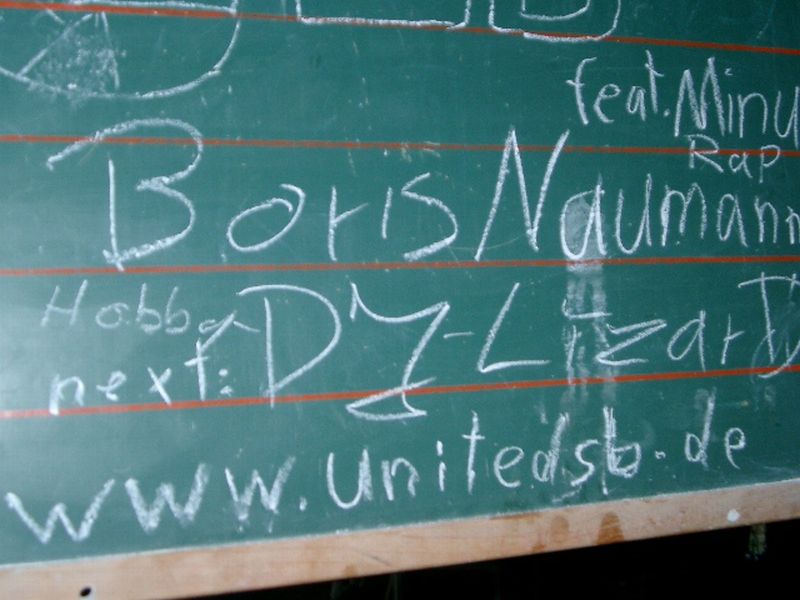 feat. Minu
Rap
Boris Naumann
Hobba
next: DJ-LizarD
www.unitedsb.de